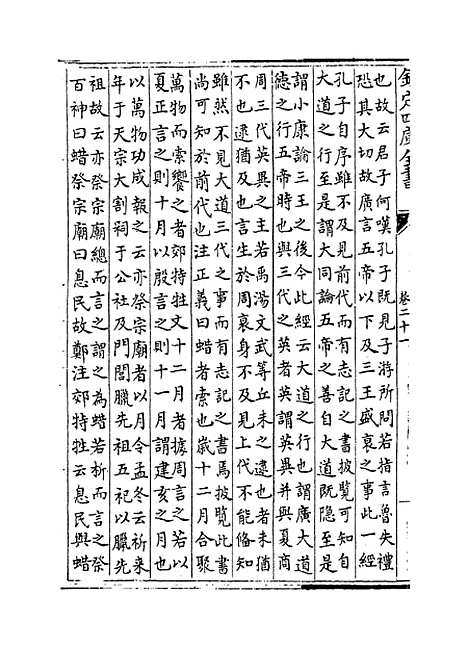 欽定四庫全書
卷二十一
也故云君子何嘆孔子既見子游所問若指言魯失禮
恐其大切故廣言五帝以下及三王盛衰之事此一經
孔子自序雖不及見前代而有志記之書披覽可知自
大道之行至是謂大同論五帝之善自大道既隱至是
謂小康論三王之後今此經云大道之行也謂廣大道
德之行五帝時也與三代之英者英謂英異并與夏商
周三代英異之主若禹湯文武等丘未之逮也者未猶
不也逮猶及也言生於周衰身不及見上代不能備知
雖然不見大道三代之事而有志記之書焉披覽此書
尚可知於前代也注正義曰蜡者索也歲十二月合聚
萬物而索饗之者郊特牲文十二月者據周言之若以
夏正言之則十月以殷言之則十一月謂建亥之月也
以萬物功成報之云亦祭宗廟者以月令孟冬云祈來
年于天宗大割祠于公社及門閭臘先祖五祀以臘先
祖故云亦祭宗廟總而言之謂之為蜡若析而言之祭
百神曰蜡祭宗廟曰息民故鄭注郊特牲云息民與蜡